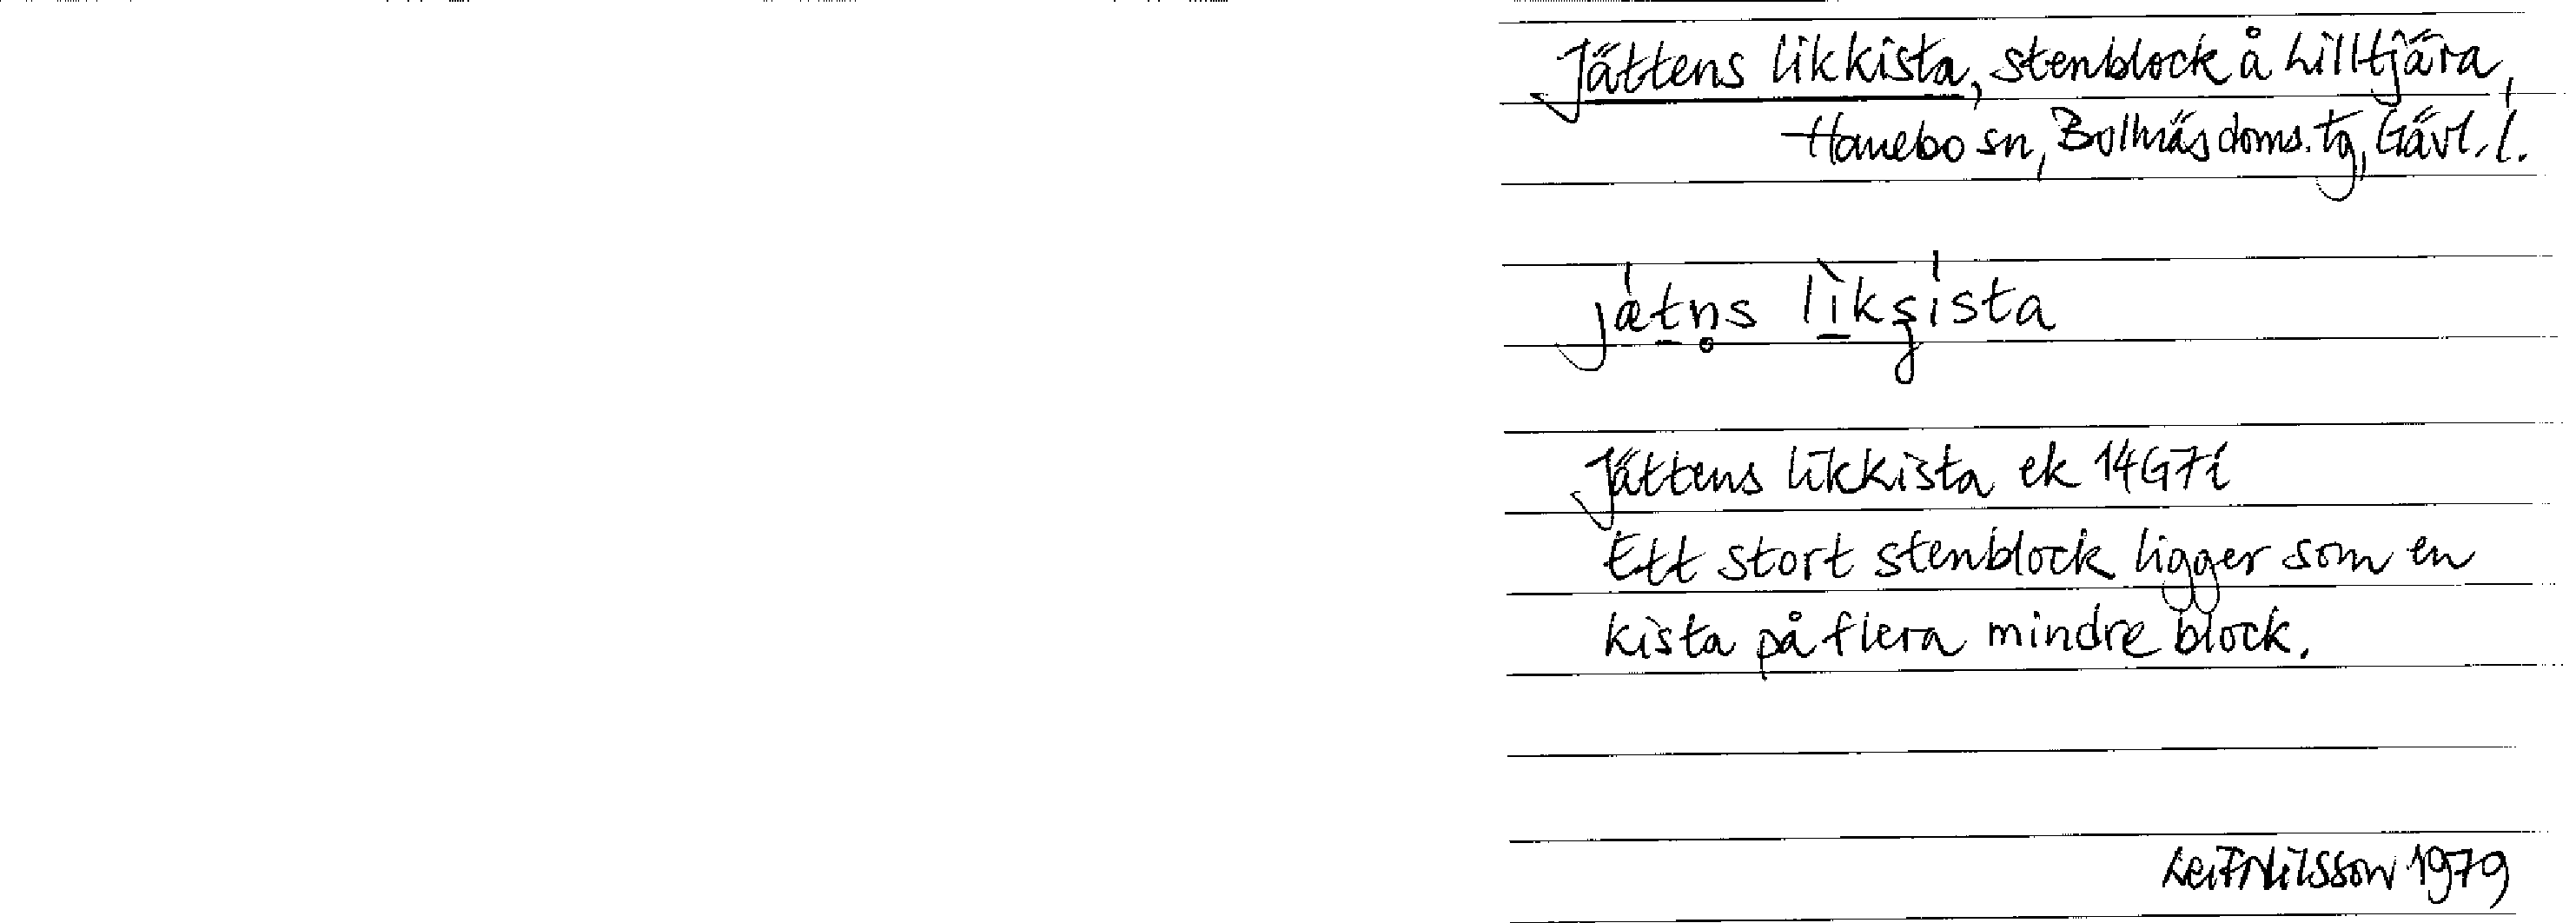 Jättens likkista, stenblock å Lilltjära,
Hanebo sn, Bollnäs doms. tg, Gävl. l.
Jättens likkista ek 14G7i
Ett stort stenblock ligger som en
kista på flera mindre block.
Leif Nilsson 1979